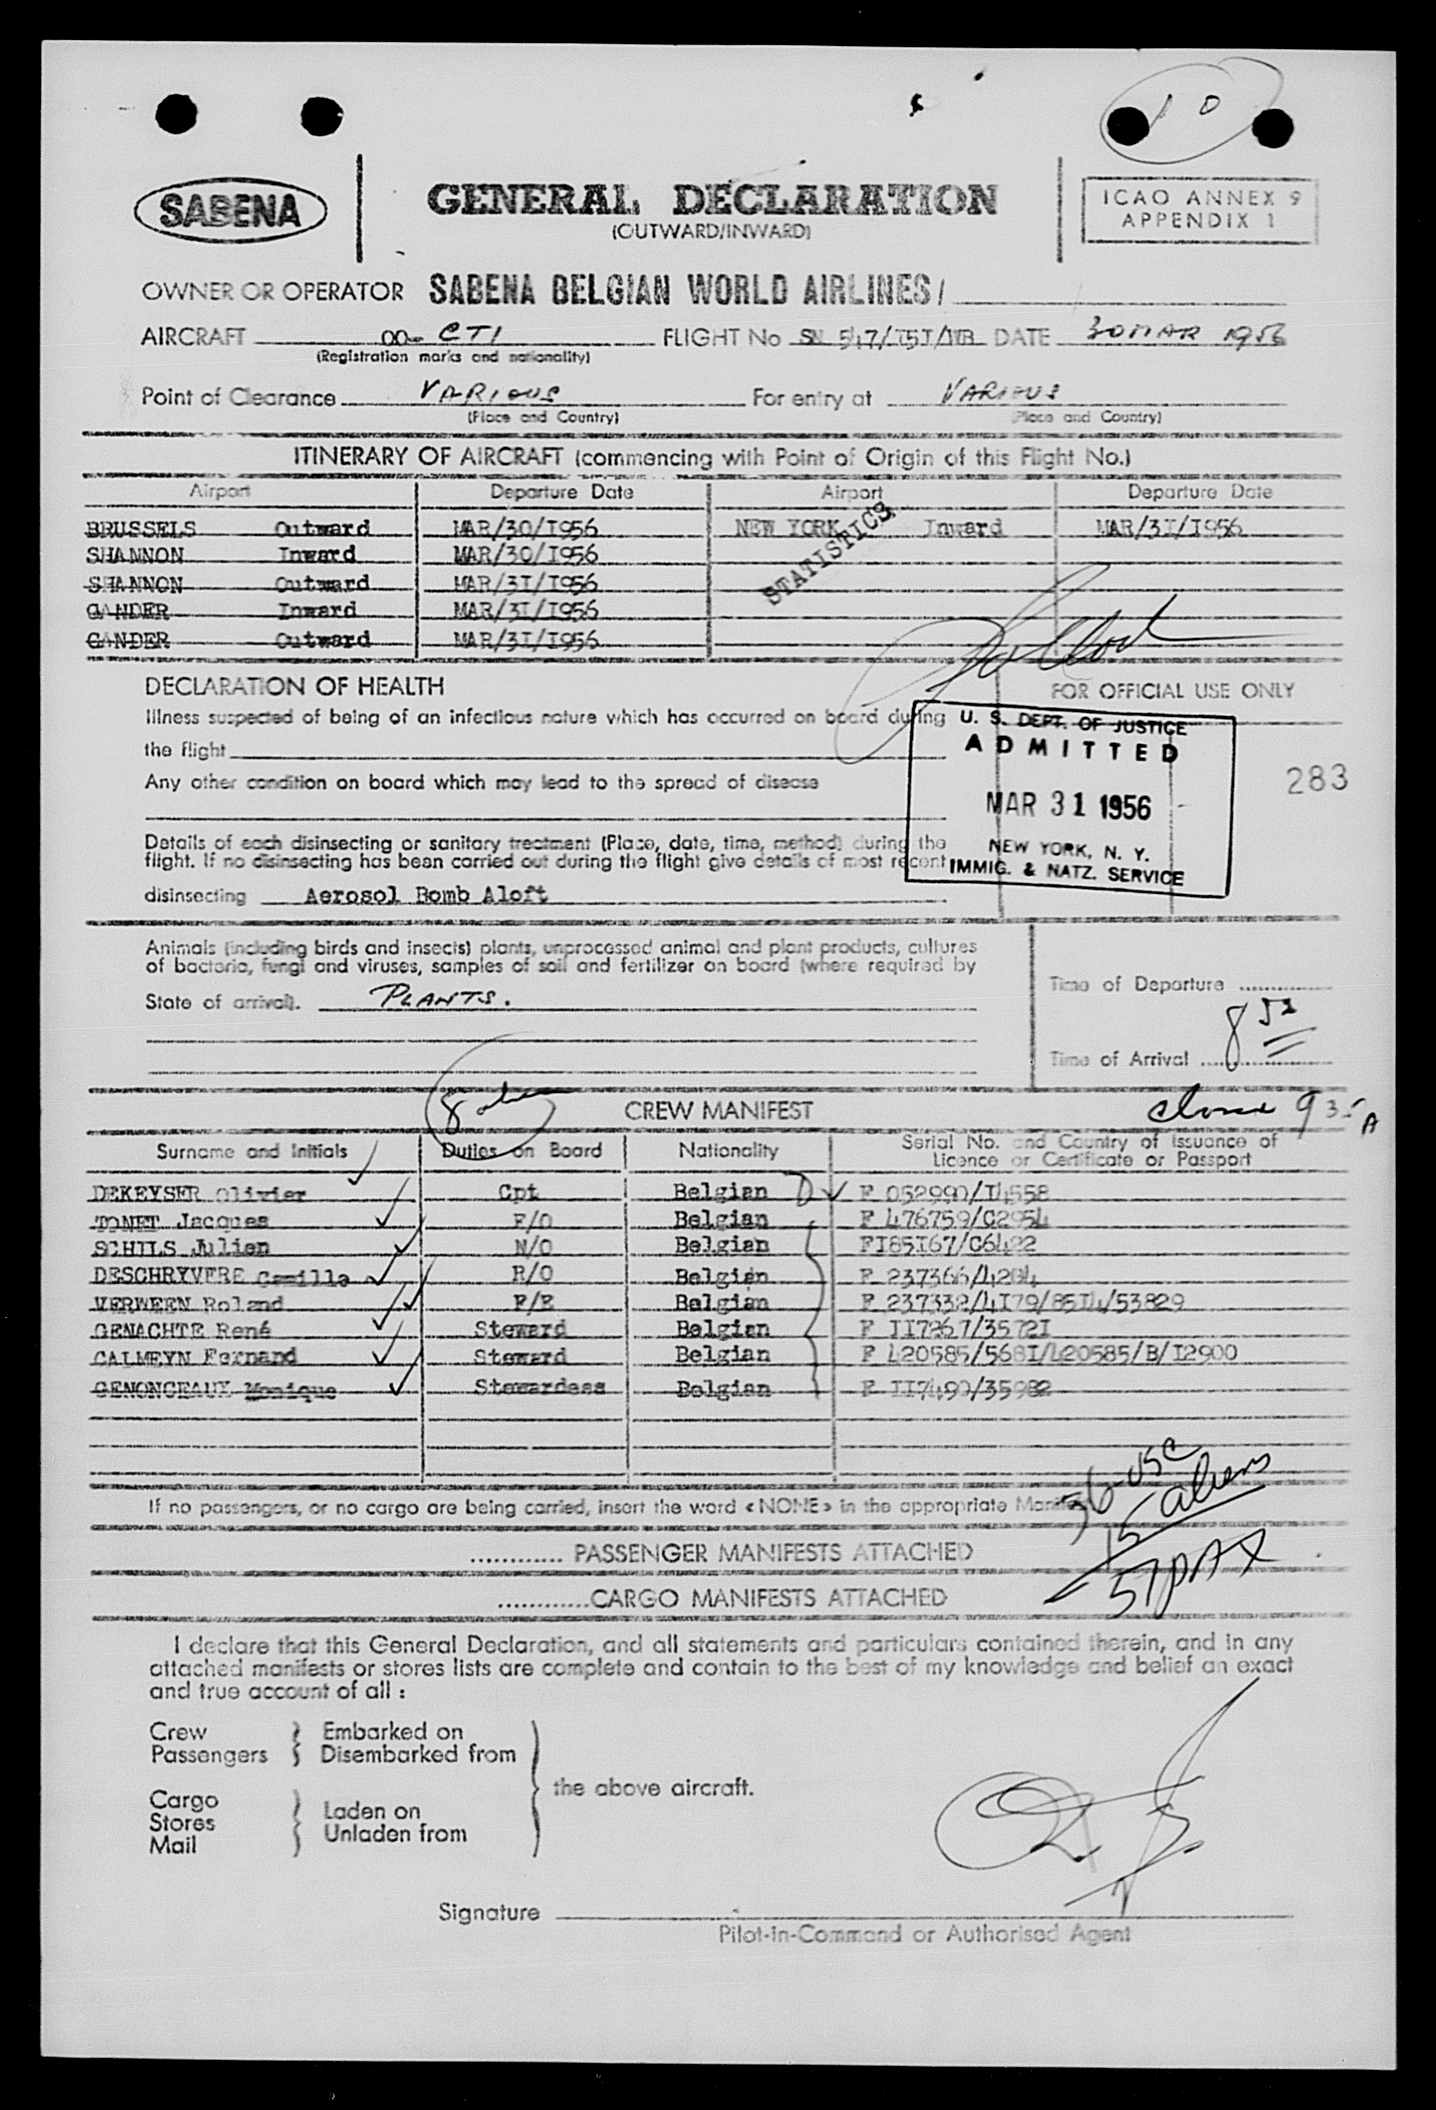 10
SABENA
GENERAL DECLARATION
(OUTWARD/INWARD)
ICAO ANNEX 9
APPENDIX 1
OWNER OR OPERATOR SABENA BELGIAN WORLD AIRLINES /
AIRCRAFT OO- CTI FLIGHT No SN 547/ DATE 30 MAR 1956
(Registration marks and nationality)
Point of Clearance VARIOUS For entry at VARIOUS
(Place and Country) (Place and Country)
ITINERARY OF AIRCRAFT (commencing with Point of Origin of this Flight No.)
Airport Departure Date Airport Departure Date
BRUSSELS Outward MAR/30/I956 NEW YORK Inward MAR/3I/I956
SHANNON Inward MAR/30/I956
SHANNON Outward MAR/3I/I956
GANDER Inward MAR/3I/I956
GANDER Outward MAR/3I/I956
STATISTICS
DECLARATION OF HEALTH
FOR OFFICIAL USE ONLY
Illness suspected of being of an infectious nature which has occurred on board during
the flight
Any other condition on board which may lead to the spread of disease
Details of each disinsecting or sanitary treatment (Place, date, time, method) during the
flight. If no disinsecting has been carried out during the flight give details of most recent
disinsecting Aerosol Bomb Aloft
U. S. DEPT. OF JUSTICE
ADMITTED
MAR 31 1956
NEW YORK, N. Y.
IMMIG. & NATZ. SERVICE
283
Animals (including birds and insects) plants, unprocessed animal and plant products, cultures
of bacteria, fungi and viruses, samples of soil and fertilizer on board (where required by
State of arrival). PLANTS.
Time of Departure
Time of Arrival 8 52
8
CREW MANIFEST
935 A
Surname and Initials Duties on Board Nationality Serial No. and Country of Issuance of
Licence or Certificate or Passport
DEKEYSER Olivier Cpt Belgian F 052990/I4558
TONET Jacques F/O Belgian F 476759/C2954
SCHILS Julien N/O Belgian FI85I67/C6422
DESCHRYVERE Camille R/O Belgian F 237366/4204
VERWEEN Roland F/E Belgian F 237332/4I79/85I4/53829
GENACHTE René Steward Belgian F II7267/3572I
CALMEYN Fernand Steward Belgian F 420585/568I/420585/B/I2900
GENONCEAUX Monique Stewardess Belgian F II7490/35982
If no passengers, or no cargo are being carried, insert the word « NONE » in the appropriate Manifest
............ PASSENGER MANIFESTS ATTACHED
............CARGO MANIFESTS ATTACHED
36 USC
15 aliens
51 PAX
I declare that this General Declaration, and all statements and particulars contained therein, and in any
attached manifests or stores lists are complete and contain to the best of my knowledge and belief an exact
and true account of all :
Crew Embarked on
Passengers Disembarked from
the above aircraft.
Cargo
Stores Laden on
Mail Unladen from
Signature
Pilot-in-Command or Authorised Agent